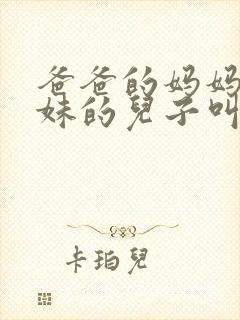 爸爸的妈妈
妹的兒子叫
卡珀兒